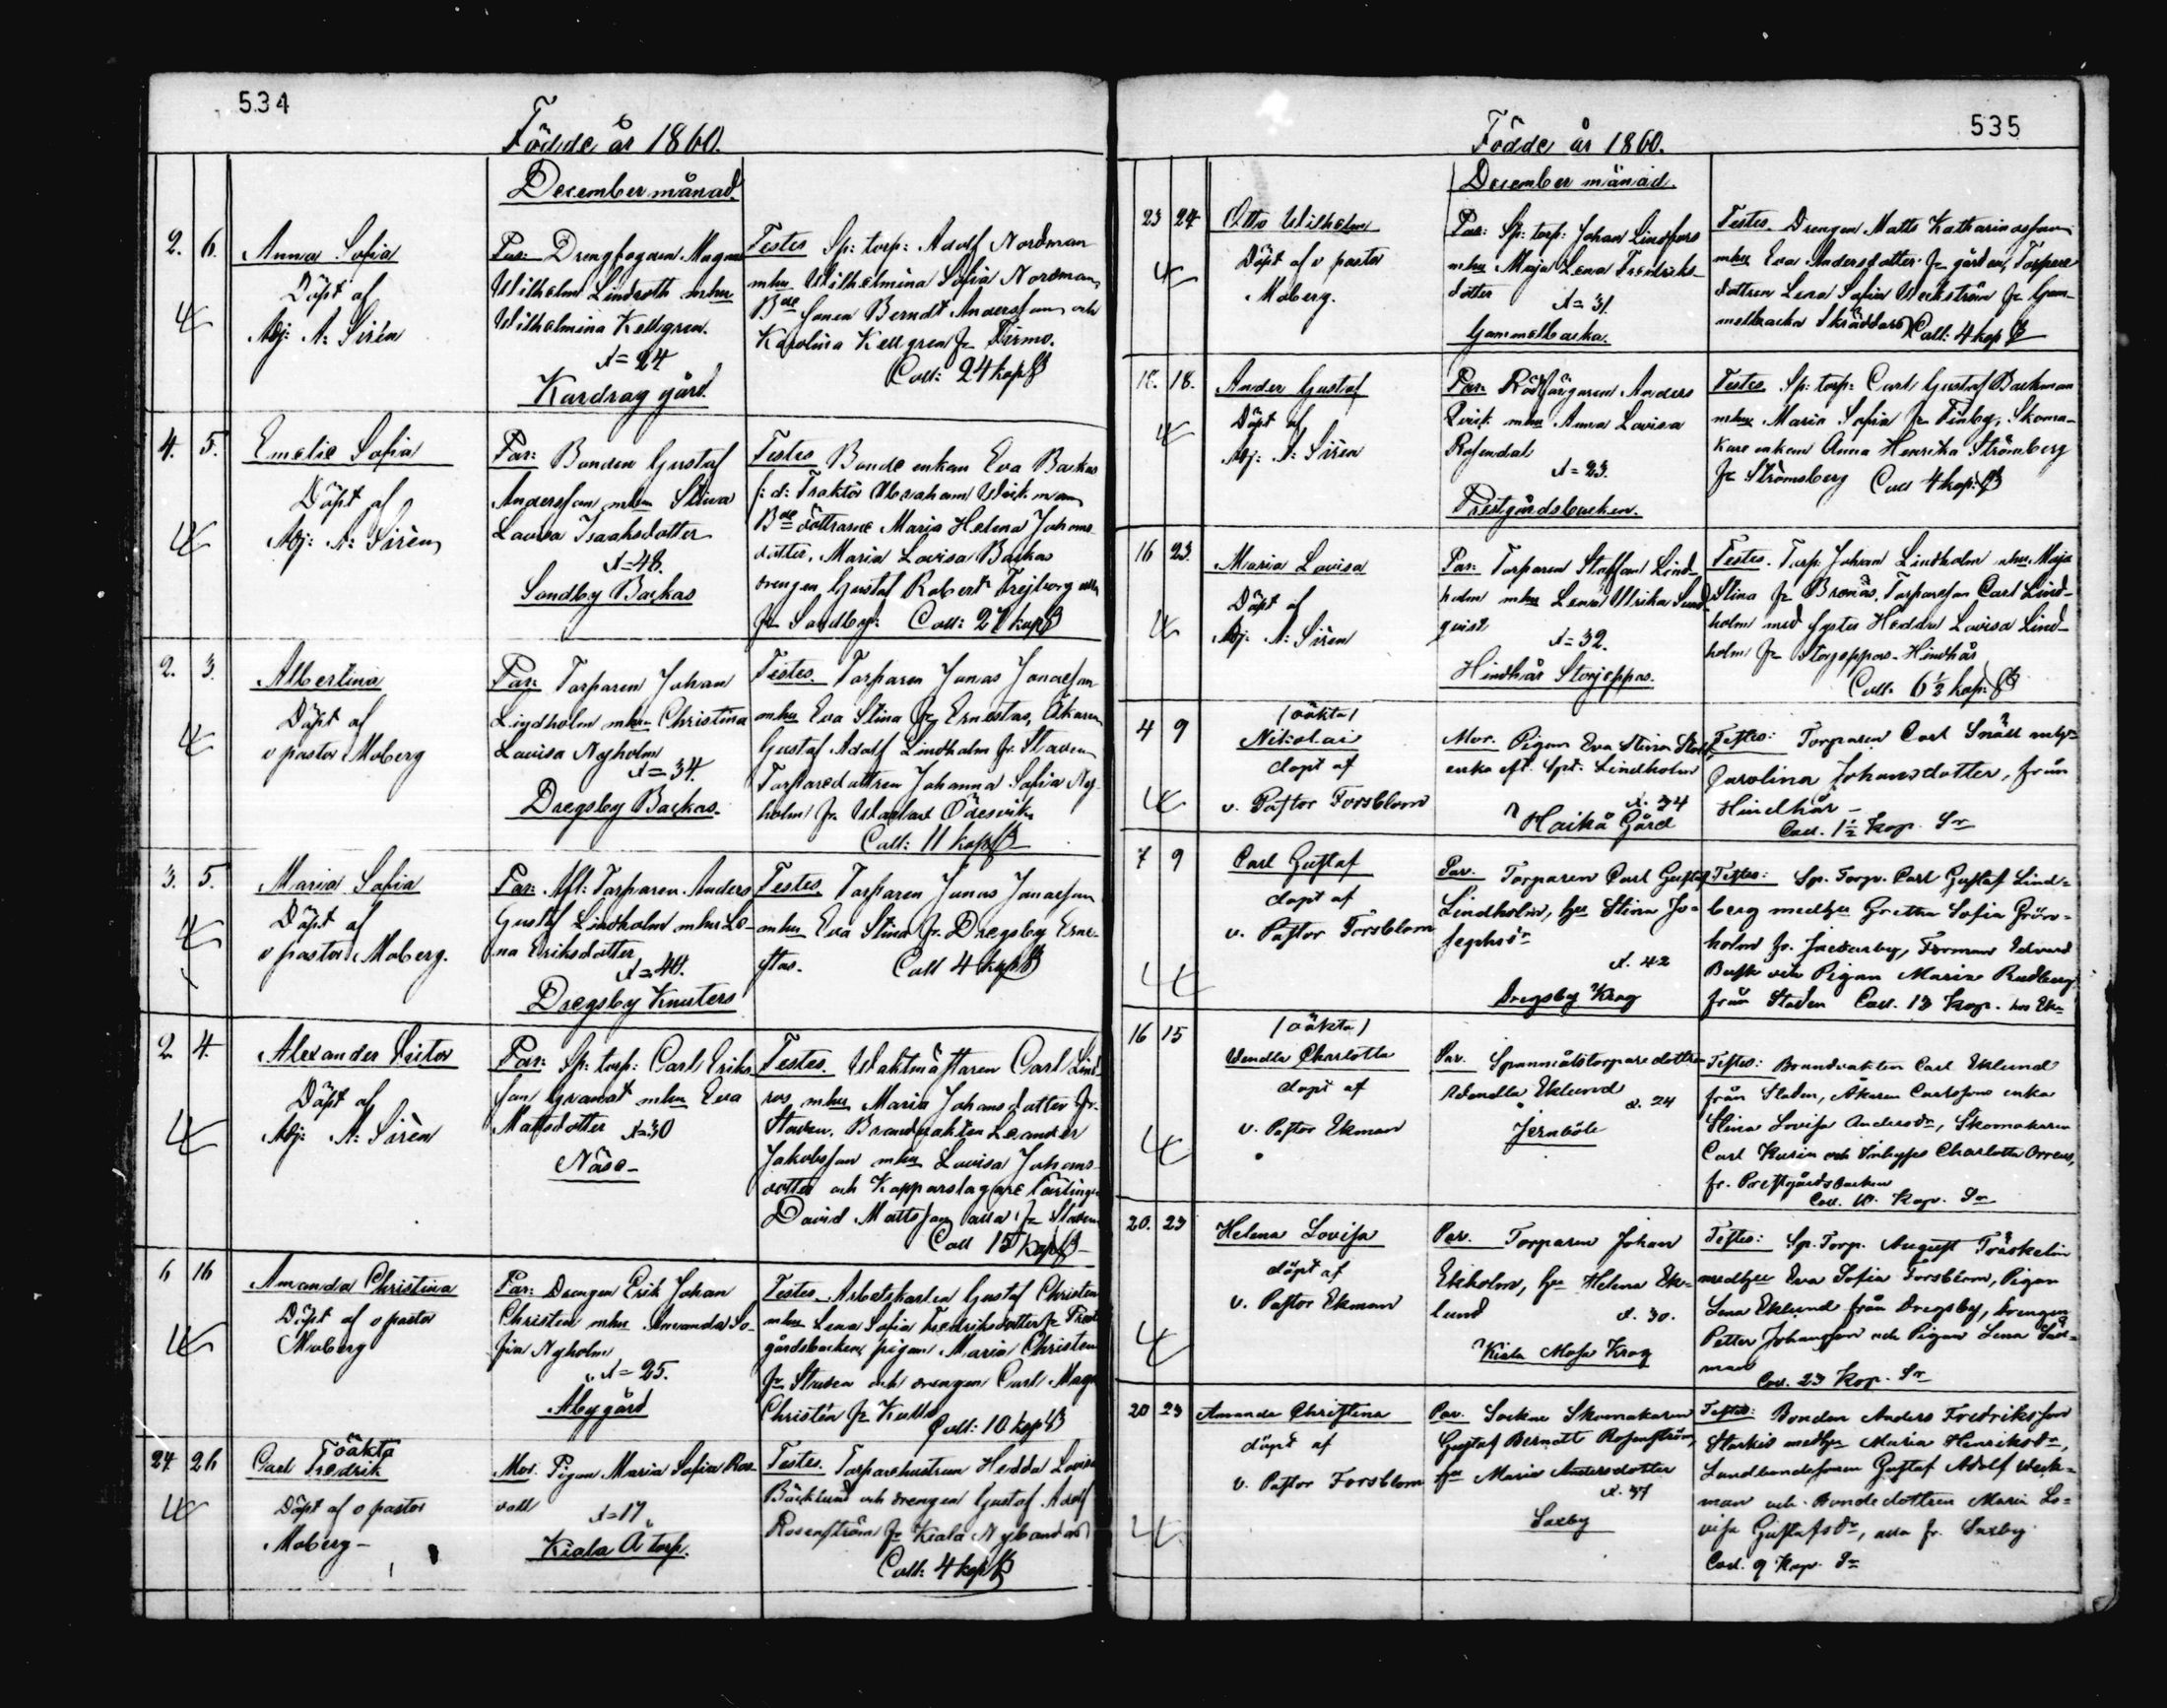 534
Födde år 1860.
December månad.
2. 6. Anna Sofia
Döpt af
Adj: A: Sirén
Par: Drengfogden Magnus
Wilhelm Lindroth mhu
Wilhelmina Kellgren.
A=24
Kardrag gård.
Testes Sp: torp: Adolf Nordman
mhu Wilhelmina Sofia Nordman,
Bde sonen Berndt Andersson och
Karolina Kellgren fr Tirmo.
Coll: 24 kop S
4. 5. Emelie Sofia
Döpt af
Adj: A: Sirén
Par: Bonden Gustaf
Andersson mhu Stina
Lovisa Isaaksdotter
A=48.
Sondby Backas
Testes Bonde enkan Eva Backas
f: d: Traktör Abraham Wickman
Bde döttrarne Maria Helena Johans
dotter, Maria Lovisa Backas
drengen Gustaf Robert Frejborg alla
fr Sondby. Coll: 27 kop S
2. 3. Albertina
Döpt af
v pastor Moberg
Par: Torparen Johan
Lindholm mhu Christina
Lovisa Nyholm
A=34.
Dregsby Backas.
Testes. Torparen Jonas Jonasson
mhu Eva Stina fr Ernestas, Åkaren
Gustaf Adolf Lindholm fr Staden
Torparedottren Johanna Sofia Ny-
holm fr
Coll: 11 kop S
3. 5. Maria Sofia
Döpt af
v pastor Moberg.
Par: Afl: Torparen Anders
Gustaf Lindholm mhu Le-
na Eriksdotter
A=40.
Dregsby Knuters
Testes. Torparen Jonas Jonasson
mhu Eva Stina fr. Dregsby Erne-
stas. Coll 4 kop S
2 4. Alexander Victor
Döpt af
Adj: A: Sirén
Par: Sp: torp: Carl Eriks
son Granat mhu Eva
Mattsdotter A=30
Näse-
Testes. Waktmästaren Carl Lind
ros mhu Maria Johansdotter fr.
Staden. Brandvakten Leander
Jakobsson mhu Lovisa Johans-
dotter och Kopparslagare lärlingen
David Mattsson alla fr Staden
Coll 15 kop S
6 16 Amanda Christina
Döpt af v pastor
Moberg
Par: Drengen Erik Johan
Christen mhu Amanda So-
fia Nyholm
A=25.
Åby gård
Testes. Arbetskarlen Gustaf Christen
mhu Lena Sofia Fredriksdotter fr Prest
gårdsbacken pigan Maria Christen
fr Staden och drengen Carl Magn
Christén fr Kullo
Coll: 10 kop S
24 26 oäkta
Carl Fredrik
Döpt af v pastor
Moberg -
Mor. Pigan Maria Sofia Ros-
vall
A=17
Kiala Å torp.
Testes. Torparehustrun Hedda Lovisa
Bäcklund och drengen Gustaf Adolf
Rosenström fr Kiala Nybondas
Coll: 4 kop S
535
Födde år 1860.
December månad.
23 24 Otto Wilhelm
Döpt af v pastor
Moberg.
Par: Sp: torp: Johan Lindfors
mhu Maja Lena Fredriks-
dotter
A=31.
Gammelbacka.
Testes. Drengen Matts Katharinasson
mhu Eva Andersdotter fr gården, Torpare
dottren Lena Sofia Weckström fr Gam-
melbacka Skräddars Coll: 4 kop S
18. 18. Ander Gustaf
Döpt af
Adj: A: Sirén
Par: Rödfärgaren Anders
Qvick mhu Anna Lovisa
Rosendal
A=23.
Prestgårdsbacken.
Testes Sp: torp: Carl Gustaf Backman
mhu Maria Sofia fr Finby, Skoma-
kare enkan Anna Henrika Strömberg
fr Strömsberg Coll 4 kop: S
16 23 Maria Lovisa
Döpt af
Adj: A: Sirén
Par: Torparen Staffan Lind-
holm mhu Lena Ulrika Sund-
quist
A=32.
Hindhår Storjeppas.
Testes. Torp: Johan Lindholm mhu Maja
Stina fr Bronäs. Torpareson Carl Lind-
holm med Syster Hedda Lovisa Lind-
holm fr Storjeppas-Hindhår
Coll: 6 ½ kop: S
4 9 (oäkta)
Nikolai
döpt af
v. Pastor Forsblom
Mor. Pigan Eva Stina
enka eft. Spt. Lindholm
A. 34
Haikå Gård
Testes: Torparen Carl Snäll
Carolina Johansdotter, från
Hindhår -
Coll. 1½ Kop. Sr
7 9 Carl Gustaf
döpt af
v. Pastor Forsblom
Par. Torparen Carl Gustaf
Lindholm, hu Stina Jo-
sephsdr
A. 42
Dregsby Krog
Testes: Sp. Torp. Carl Gustaf Lind-
berg medhu Gretha Sofia Grön-
holm fr. Jackarby, Forman Edvard
Busk och Pigan Maria Rudberg
från Staden Coll. 13 Kop.
16 15 (oäkta)
Wendla Charlotta
döpt af
v. Pastor Ekman
Par. Spannmåltorparedottren
Wendla Eklund
A. 24
Jernböle
Testes: Brandvakten Carl Eklund
från Staden, Åkaren Carlssons enka
Stina Lovisa Andersdr, Skomakaren
Carl Kurin och Inhyses Charlotta Orrens,
fr. Prestgårdsbacken
Coll. 10. Kop. Sr
20. 23 Helena Lovisa
döpt af
v. Pastor Ekman
Par. Torparen Johan
Ekholm, hu Helena Ek-
lund
A. 30.
Kiala Mosa Krog
Testes: Sp. Torp. August Träskelin
medhu Eva Sofia Forsblom, Pigan
Lena Eklund från Dregsby, drengen
Petter Johansson och Pigan Lena
man
Coll. 23 Kop. Sr
20 23 Amanda Christina
döpt af
v. Pastor Forsblom
Par. Sockne Skomakaren
Gustaf Berndt Rosenström,
hu Maria Andersdotter
A. 37
Saxby
Testes: Bonden Anders Fredriksson
Starkis medhu Maria Henriksdr,
Landbondesonen Gustaf Adolf Weck-
man och Bondedottren Maria Lo-
visa Gustafsdr, alla fr. Saxby.
Coll. 9 Kop. Sr